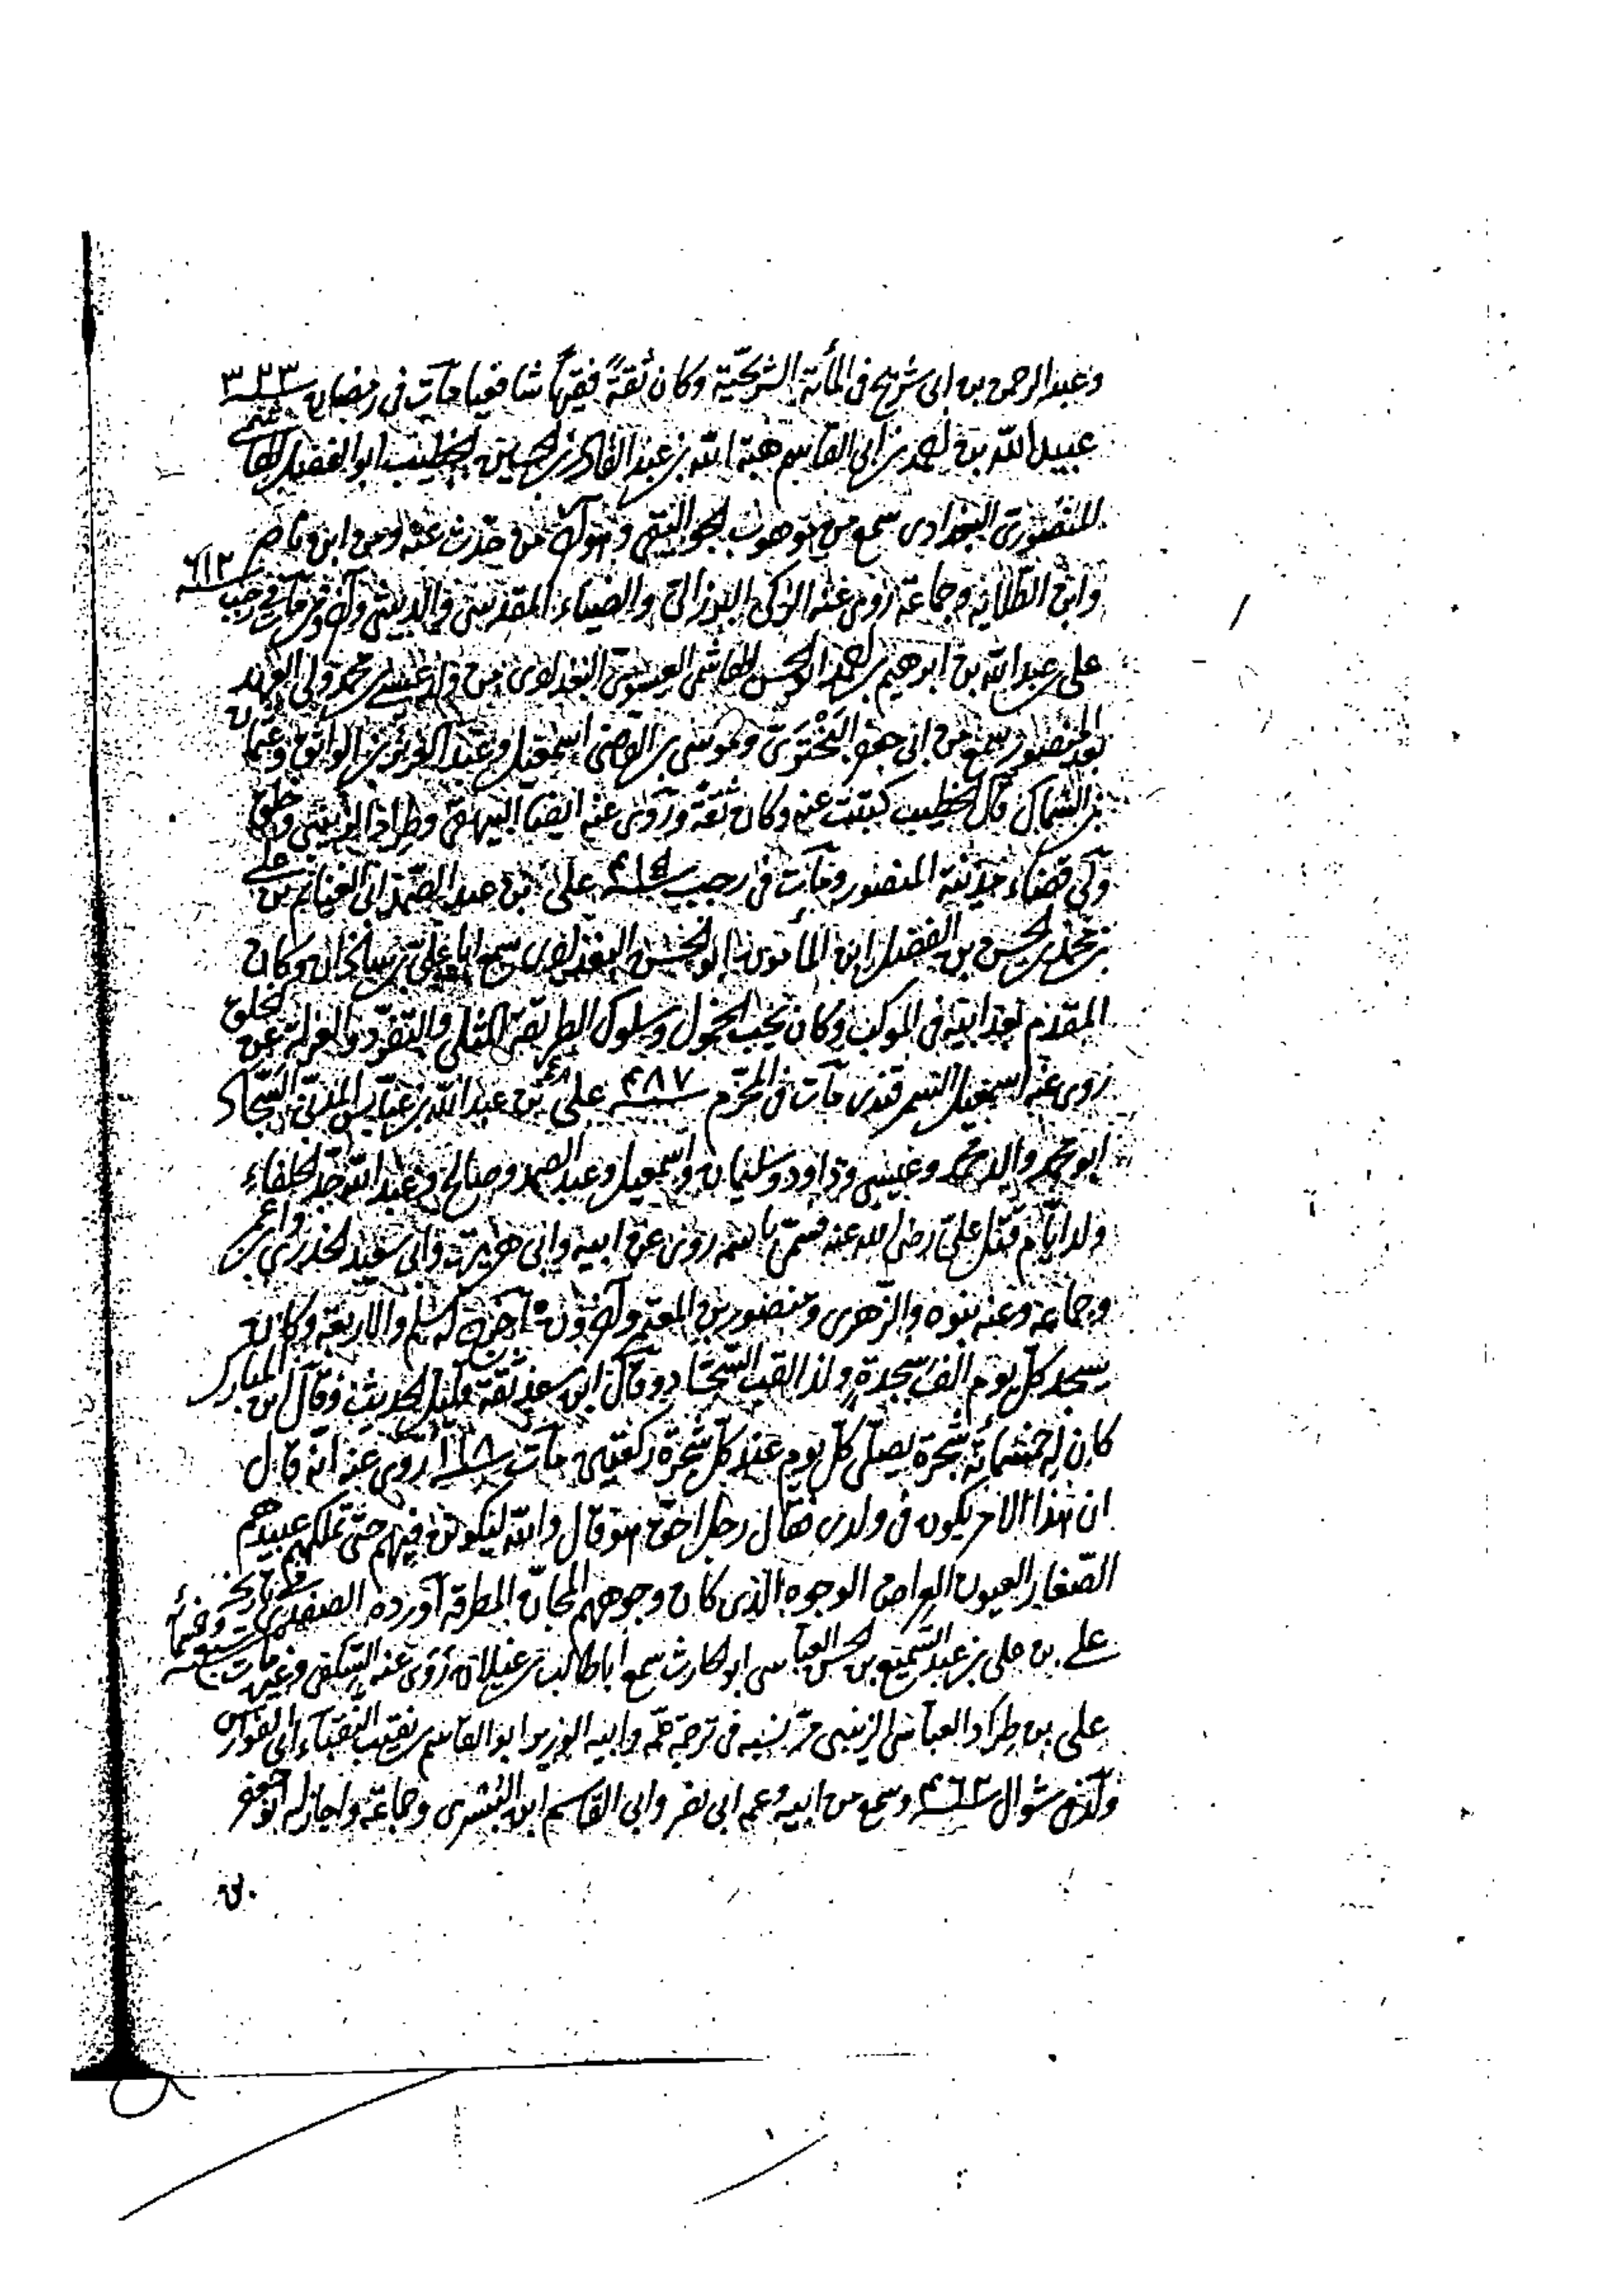 وعبد الرحمن بن ابى شريح فى المأتة الشريحيّة وكان ثقةً فقيهاً شافعيا مات فى رمضان سنة ٣٢٣
عبيد الله بن احمد بن ابى القاسم هبة الله بن عبد القادر بن الحسين الخطيب ابو الفضل الهاشمى
المنصورى البغدادى سمع من موهوب الجواليقى وهو آخر من حدّث عنه ومن ابن ناصر
وابن الطلاية وجماعة روى عنه الزكى البرزالى والضياء المقدسى والدبيثى وآخرون مات فى رجب ٦١٣
على بن عبد الله بن ابرهيم بن احمد ابو الحسن الهاشمى العيسوى البغدادى من ولد عيسى بن محمد ولى العهد
بعد المنصور سمع من ابى جعفر البَخْتَرى وموسى بن القاضى اسمعيل وعبد العزيز بن الواثق وعثمان
بن السماك قال الخطيب كتبت عنه وكان ثقة وروى عنه ايضا البيهقى وطراد الزينبى وخلق
ولى قضاء مدينة المنصور ومات فى رجب ٤١٥ على بن عبد الصمد ابى الغنائم بن على
بن محمد بن الحسن بن الفضل ابن المأمون ابو الحسن البغدادى سمع ابا على بن شاذان وكان
المقدم بعد ابيه فى الموكب وكان يحب الخمول وسلوك الطريقة المثلى والتفرّد والعزلة عن الخلق
روى عنه اسمعيل السمرقندى مات فى المحرّم ٤٨٧ على بن عبد الله بن عبّاس المدنى السّجاد
ابو محمد والد محمد وعيسى وداود وسليمان واسمعيل وعبد الصمد وصالح وعبد الله جد الخلفاء
ولد ايّام قتل علىّ رضى الله عنه فسمّى باسمه روى عن ابيه وابى هريرة وابى سعيد الخدرى وابن عمر
وجماعة وعنه بنوه والزهرى ومنصور بن المعتمر وآخرون اخرج له مسلم والاربعة وكان
يسجد كل يوم الف سجدة ولذا لقب السّجّاد وقال ابن سعد ثقة قليل الحديث وقال ابن المبارك
كان له خمسمائة شجرة يصلّى كل يوم عند كل شجرة ركعتين مات ١١٨ روى عنه انه قال
ان هذا الامر يكون فى ولدى فقال رجل احق هو قال والله ليكونن فيهم حتى تملكهم عبيدهم
الصغار العيون العراض الوجوه الذين كان وجوههم المجانّ المطرقة اورده الصفدى فى تاريخه
على بن على بن عبد السميع بن الحسن العباسى ابو الحارث سمع اباطالب بن غيلان روى عنه السلفى وغيره مات سنة
على بن طراد العباسى الزينبى مرّ نسبه فى ترجمة عمّه وابيه الوزير ابو القاسم بن نقيب النقباء ابى الفوارس
ولد فى شوال ٤٦٢ وسمع من ابيه وعمه ابى نصر وابى القاسم ابن البُسرى وجماعة واجاز له ابو جعفر